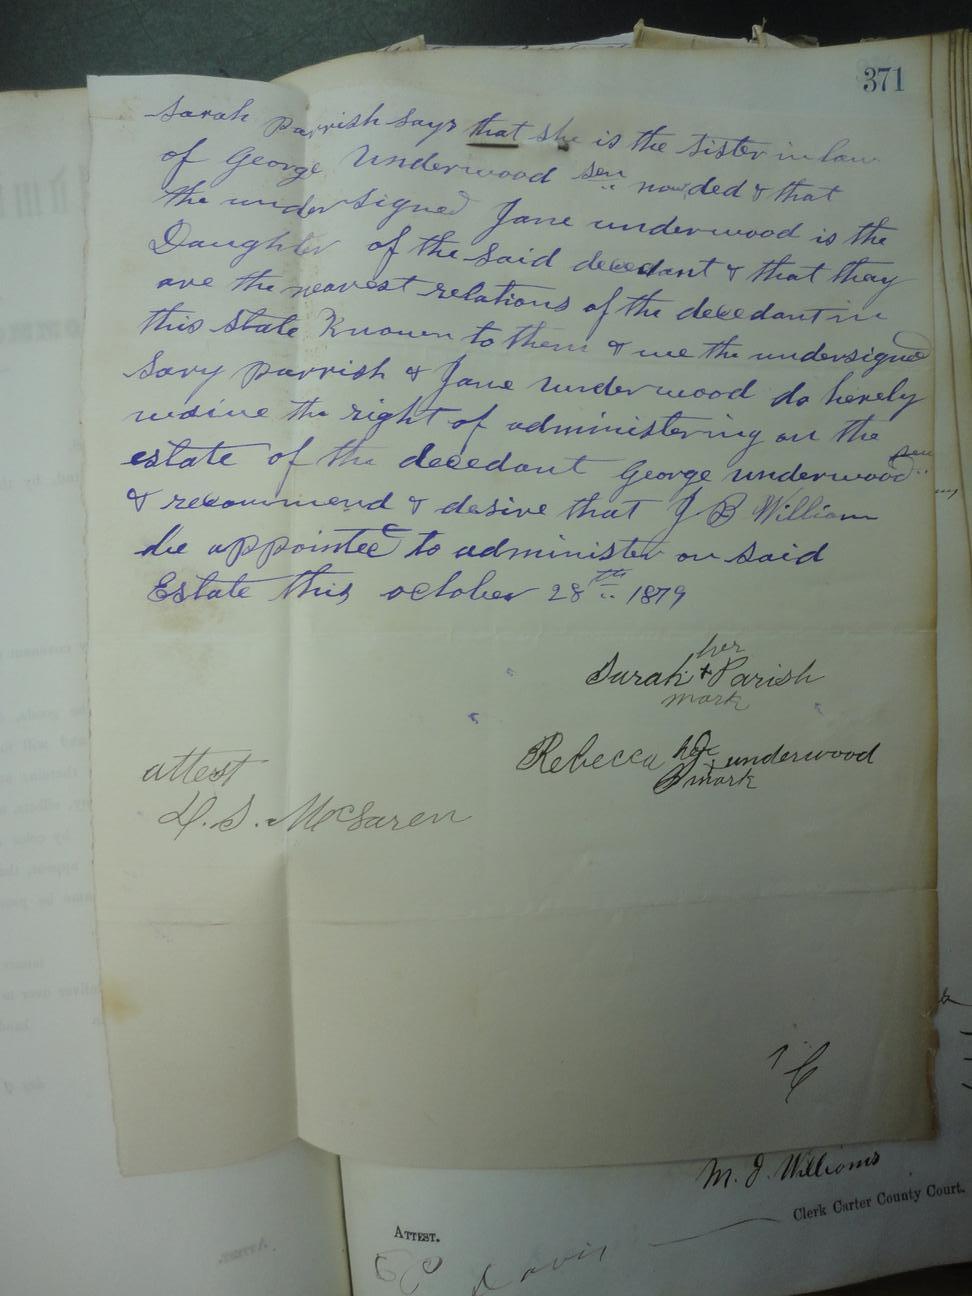 371
Sarah Parrish says that she is the sister in law
of George Underwood sen now ded & that
the undersigned Jane underwood is the
Daughter of the said decedant & that thay
are the nearest relations of the decedant in
this state Known to them & we the undersigned
Sary parrish & Jane underwood do hereby
waive the right of administering on the
estate of the decedant George underwood sen
& recommend & desire that J B William
be appointed to administer on said
Estate this october 28th 1879
her
Sarah + Parish
mark
Rebecca her underwood
mark
attest
D. S. McLaren
M. J. Williams
Clerk Carter County Court.
ATTEST.
Davis